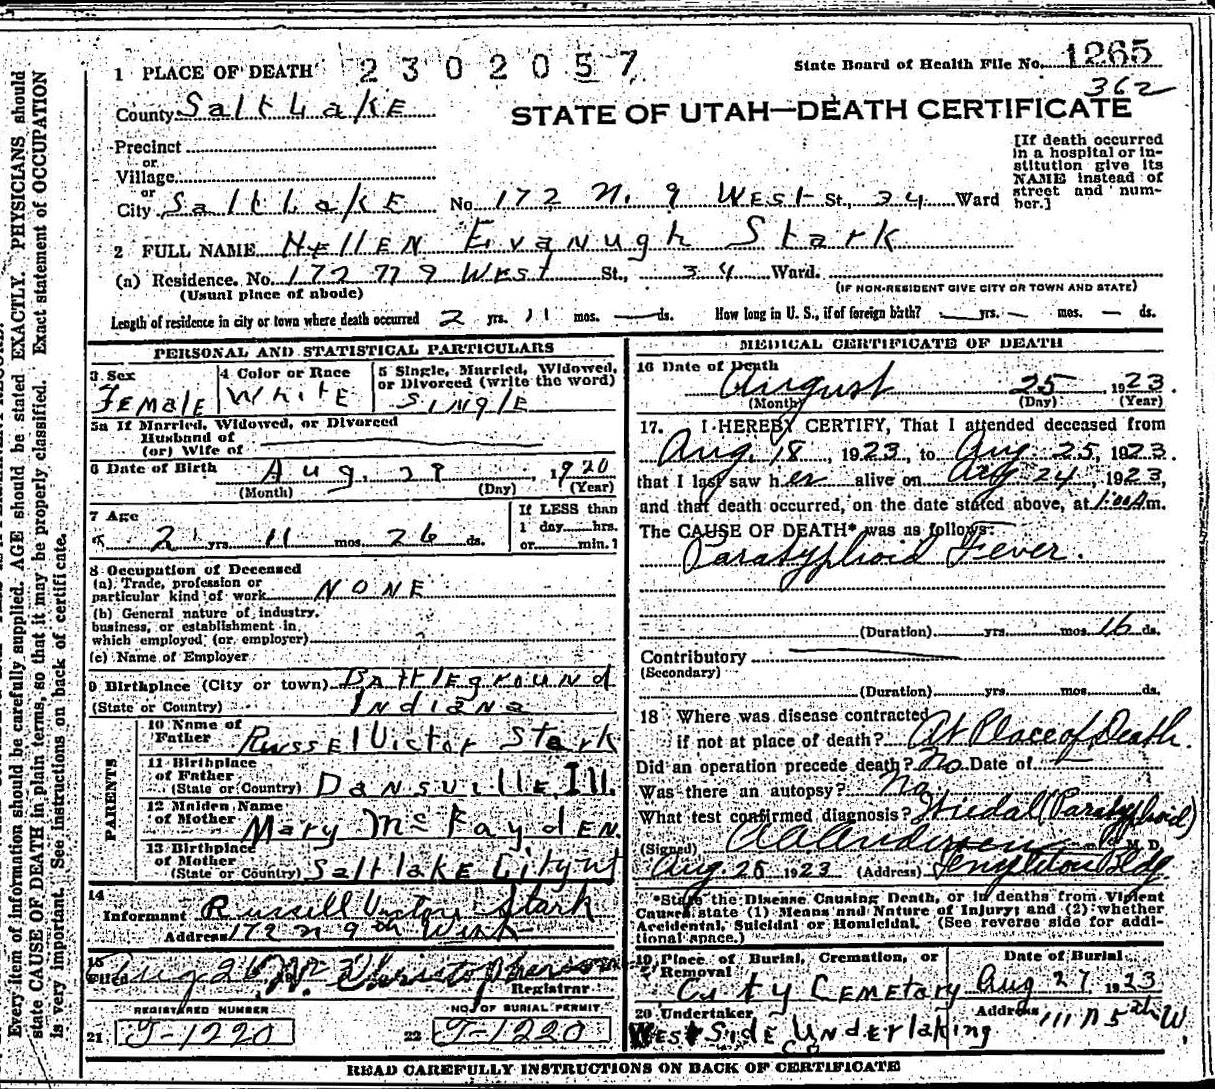 1 PLACE OF DEATH 2302057
State Board of Health File No. 1265
362
County Salt Lake
STATE OF UTAH—DEATH CERTIFICATE
Precinct
or
Village
or
City Salt Lake No. 172 N. 9 West St., 34 Ward
[If death occurred
in a hospital or in-
stitution give its
NAME instead of
street and num-
ber.]
2 FULL NAME Hellen Evanugh Stark
(a) Residence. No. 172 N 9 West St., 34 Ward.
(Usual place of abode)
(IF NON-RESIDENT GIVE CITY OR TOWN AND STATE)
Length of residence in city or town where death occurred 2 yrs. 11 mos. — ds. How long in U. S., if of foreign birth? — yrs. — mos. — ds.
PERSONAL AND STATISTICAL PARTICULARS
3 Sex
Female
4 Color or Race
White
5 Single, Married, Widowed,
or Divorced (write the word)
Single
5a If Married, Widowed, or Divorced
Husband of
(or) Wife of
6 Date of Birth Aug. 29, 1920
(Month) (Day) (Year)
7 Age
2 yrs. 11 mos. 26 ds.
If LESS than
1 day......hrs.
or......min.?
8 Occupation of Deceased
(a) Trade, profession or
particular kind of work NONE
(b) General nature of industry,
business, or establishment in
which employed (or employer)
(c) Name of Employer
9 Birthplace (City or town) Battleground
(State or Country) Indiana
PARENTS
10 Name of
Father Russel Victor Stark
11 Birthplace
of Father
(State or Country) Dansville Ill.
12 Maiden Name
of Mother Mary McFayden
13 Birthplace
of Mother
(State or Country) Saltlake City Ut
14
Informant Russell Victor Stark
Address 172 N 9th West
15
Filed Aug 26 Wm Christopherson
Registrar
REGISTERED NUMBER
21 J-1220
NO. OF BURIAL PERMIT
22 J-1220
MEDICAL CERTIFICATE OF DEATH
16 Date of Death
August 25 1923.
(Month) (Day) (Year)
17. I HEREBY CERTIFY, That I attended deceased from
Aug. 18, 1923, to Aug. 25, 1923.
that I last saw her alive on Aug 24, 1923,
and that death occurred, on the date stated above, at 1:00 A m.
The CAUSE OF DEATH* was as follows:
Paratyphoid Fever.
(Duration) yrs. mos. 16 ds.
Contributory
(Secondary)
(Duration) yrs. mos. ds.
18 Where was disease contracted
if not at place of death? At Place of Death.
Did an operation precede death? No Date of
Was there an autopsy? No
What test confirmed diagnosis? Wiedal (Paratyphoid)
(Signed) A A Anderson M. D.
Aug. 25 1923 (Address) Templeton Bldg
*State the Disease Causing Death, or in deaths from Violent
Causes state (1) Means and Nature of Injury; and (2) whether
Accidental, Suicidal or Homicidal. (See reverse side for addi-
tional space.)
19 Place of Burial, Cremation, or
Removal
City Cemetary
Date of Burial
Aug 27 1923
20 Undertaker
West Side Undertaking
Co
Address 111 N 5th W.
READ CAREFULLY INSTRUCTIONS ON BACK OF CERTIFICATE
Every item of information should be carefully supplied. AGE should be stated EXACTLY. PHYSICIANS should
state CAUSE OF DEATH in plain terms, so that it may be properly classified. Exact statement of OCCUPATION
is very important. See instructions on back of certificate.